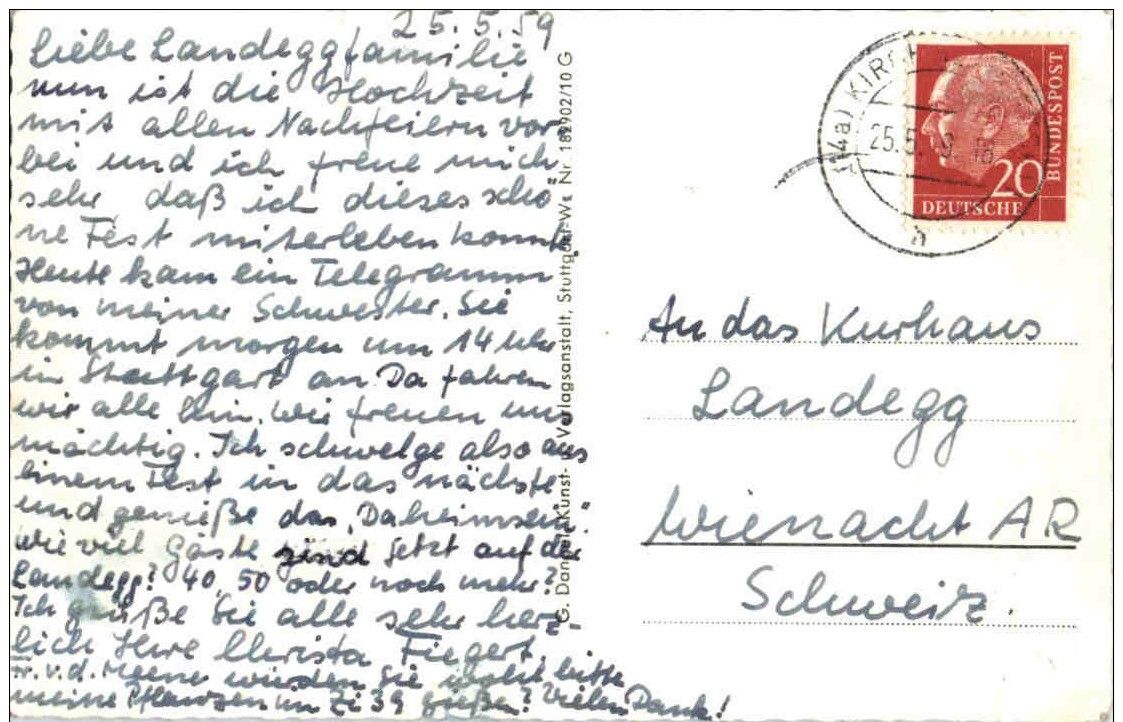 25.5.59
Liebe Landeggfamilie
nun ist die Hochzeit
mit allen Nachfeiern vor
bei und ich freue mich
sehr daß ich dieses schö
ne Fest miterleben konnte.
Heute kam ein Telegramm
von meiner Schwester. Sie
kommt morgen um 14 Uhr
in Stuttgart an. Da fahren
wir alle hin. Wir freuen uns
mächtig. Ich schwelge also aus
einem Fest in das nächste
und genieße das „Daheimsein".
Wie viel Gäste sind jetzt auf der
Landegg? 40, 50 oder noch mehr?
Ich grüße Sie alle sehr herz-
lich Ihre Christa Fiegert
Fr. v. d. Meene würden Sie wohl bitte
meine Pflanzen im Zi 39 gießen? Vielen Dank!
G. Kunst- Verlagsanstalt, Stuttgart-W. Nr. 182902/10 G
(14a) KIRCH
25.5. 9. 18
BUNDESPOST
20
DEUTSCHE
An das Kurhaus
Landegg
Wienacht AR
Schweiz.